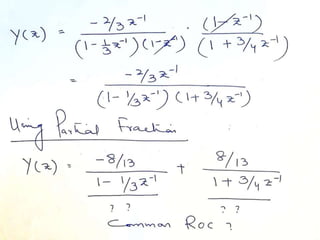 Y(z) = (-2/3 z⁻¹) / ((1 - 1/3 z⁻¹)(1 - z⁻¹)) · (1 - z⁻¹) / (1 + 3/4 z⁻¹)
= (-2/3 z⁻¹) / ((1 - 1/3 z⁻¹)(1 + 3/4 z⁻¹))
Using Partial Fraction
Y(z) = (-8/13) / (1 - 1/3 z⁻¹) + (8/13) / (1 + 3/4 z⁻¹)
? ? ? ?
Common ROC ?